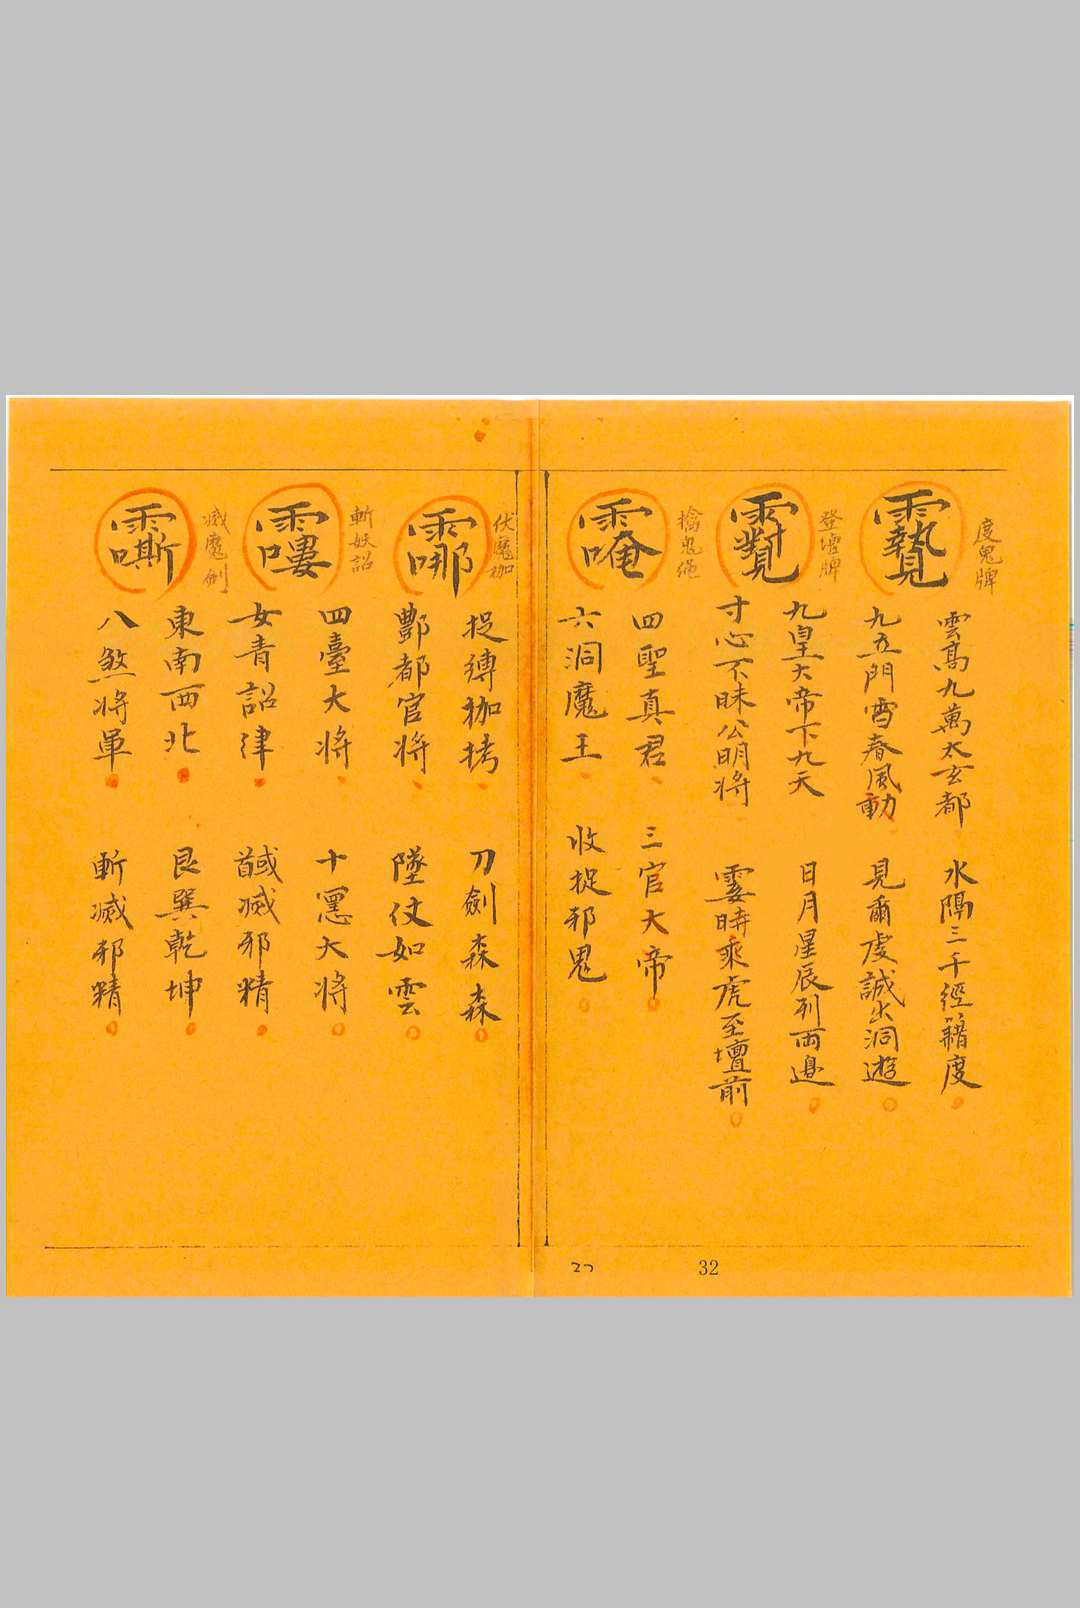 度鬼牌
雲髙九萬太玄都 水隔三千徑籍度
九五門霄春風動 見爾虔誠出洞遊
登壇牌
九皇大帝下九天 日月星辰列両邊
寸心不昧公明将 霎時乘虎至壇前
擒鬼绳
四聖真君 三官大帝
六洞魔王 收捉邪鬼
伏魔枷
捉縛枷拷 刀劍森森
酆都官将 隊仗如雲
斬妖詔
四臺大将 十惡大将
女青詔律 馘滅邪精
滅魔劍
東南西北 艮巽乾坤
八煞将軍 斬滅邪精
27
32